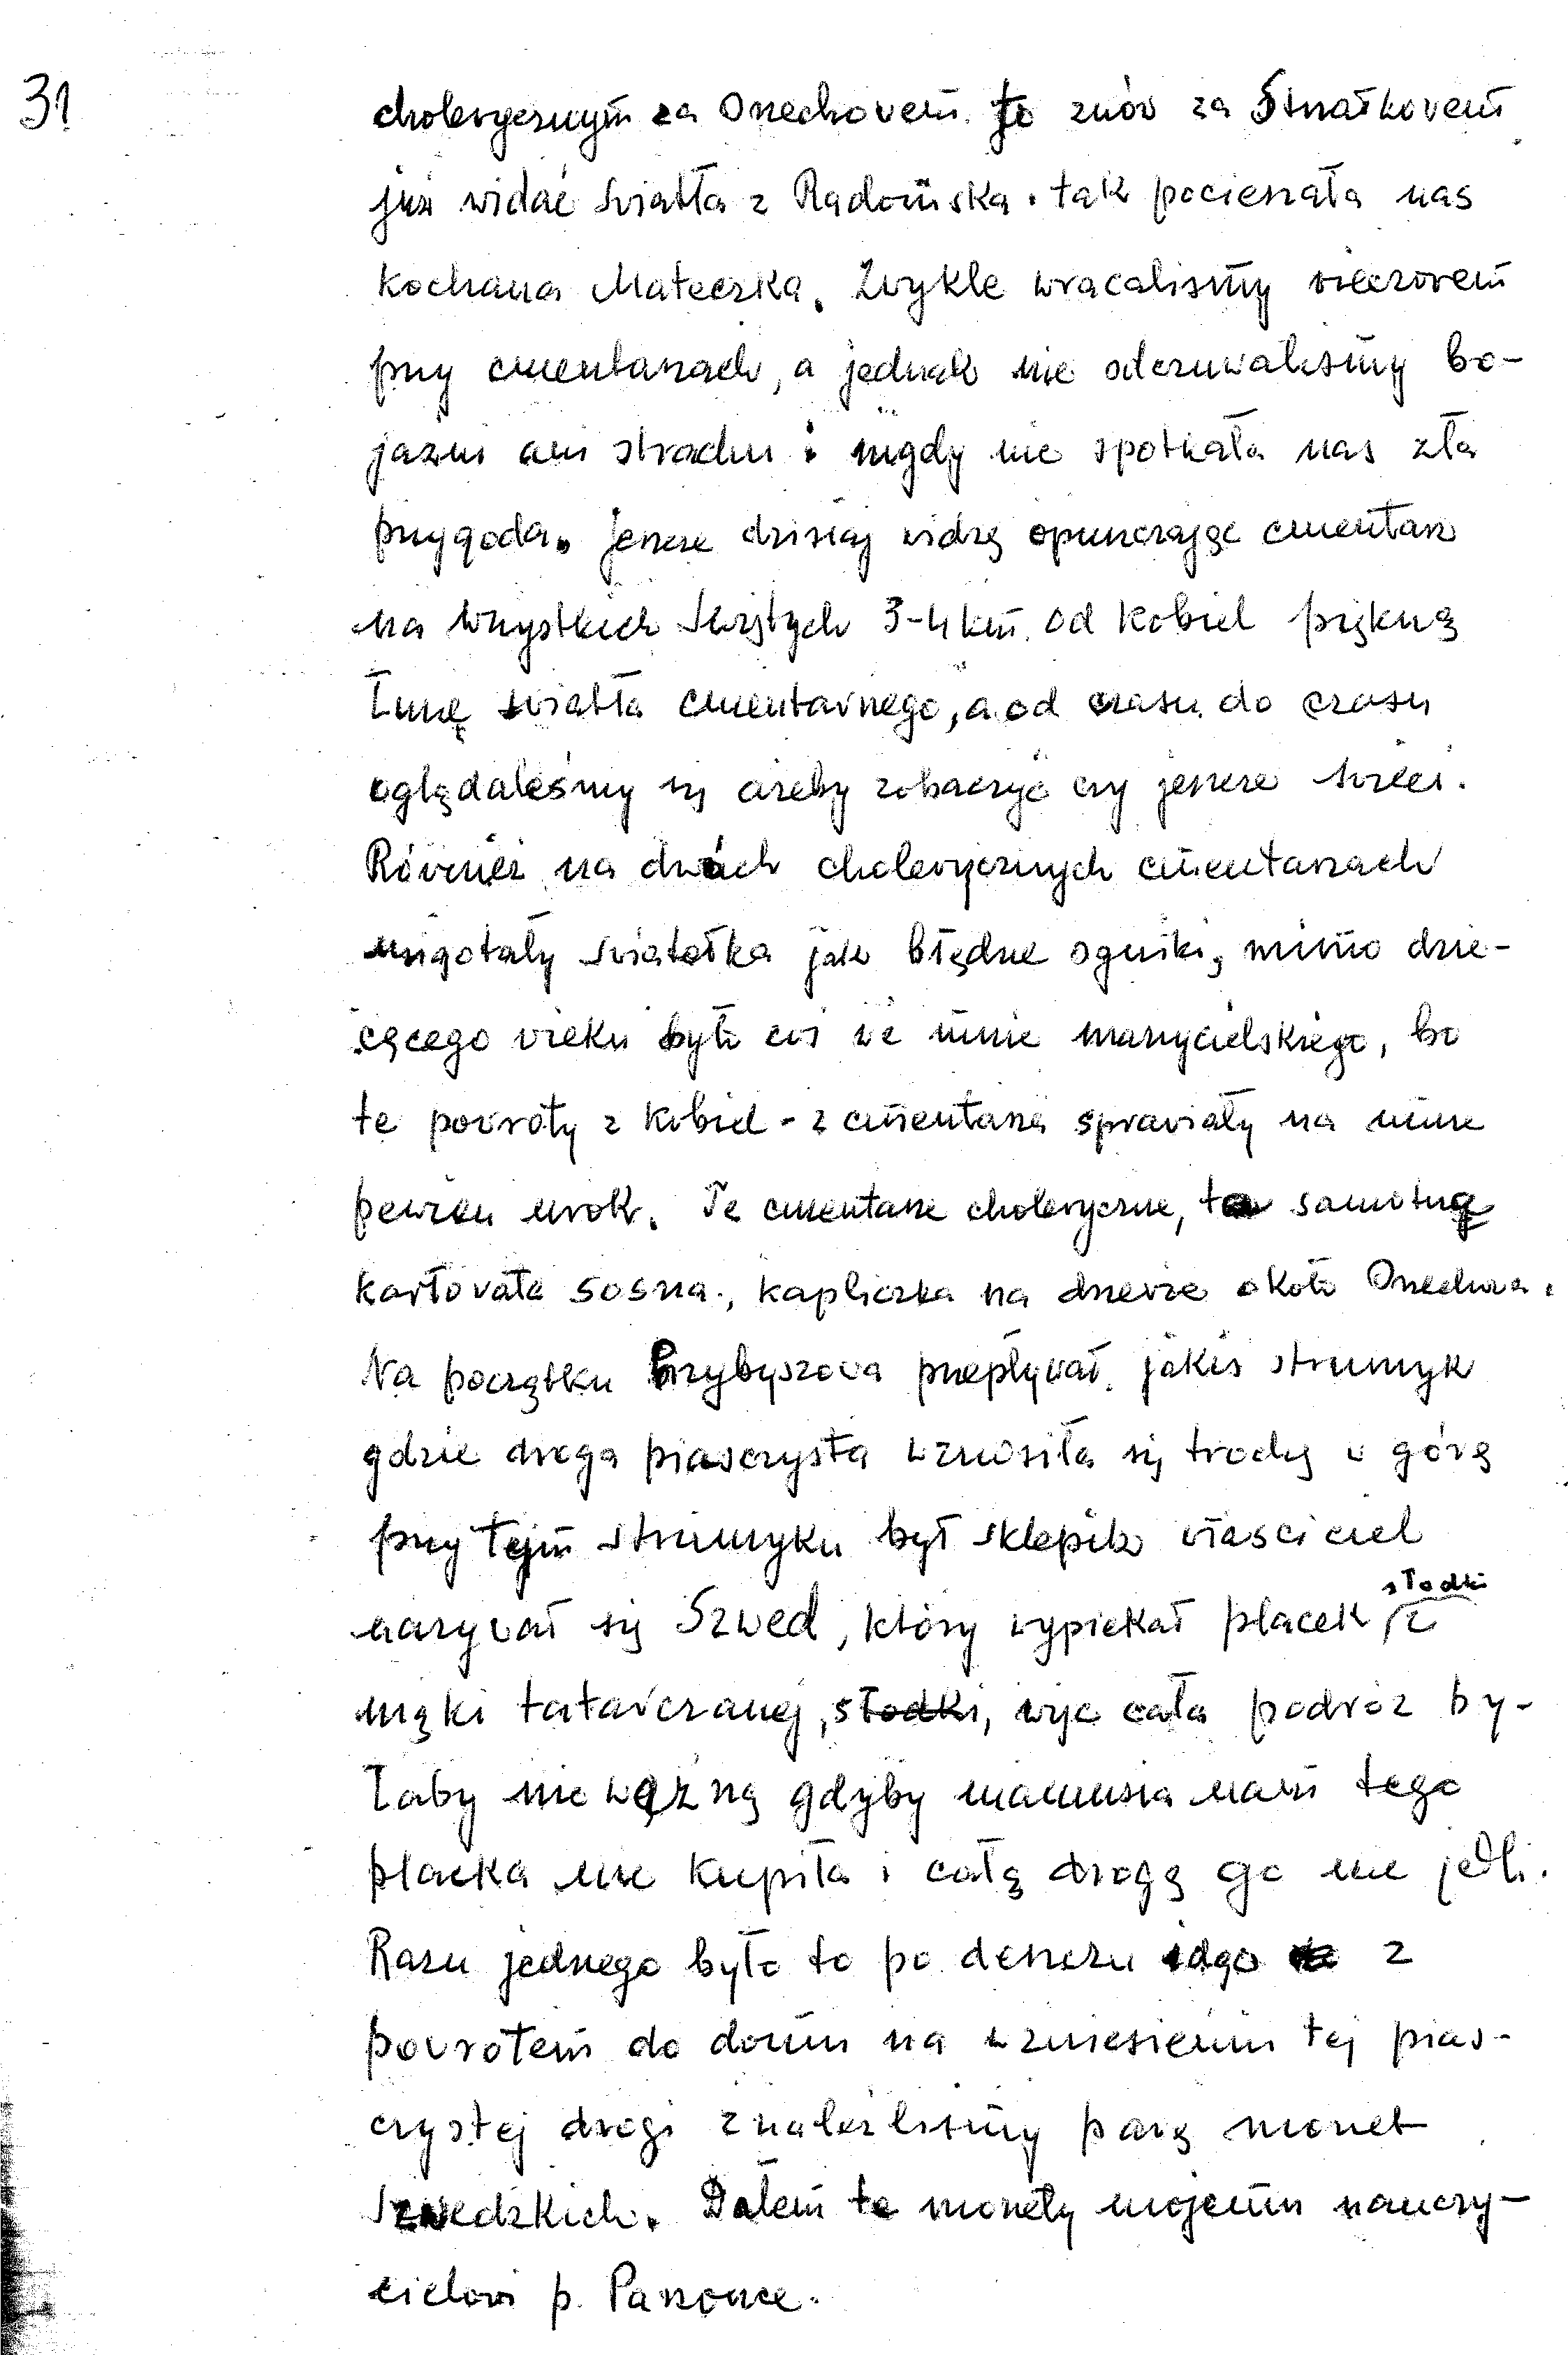 31
cholerycznym za Orzechovem. to znóv za Strzałkovem
już vidać światła z Radomska. tak pocieszała nas
kochana Mateczka. Zvykle wracaliśmy vieczorem
przy cmentarzach, a jednak nie odczuwaliśmy bo-
jaźni ani strachu i nigdy nie spotkała nas zła
przygoda. jeszcze dzisiaj vidzę opuszczając cmentarz
na wszystkich Świętych 3-4 km. od Kobiel piękną
łunę światła cmentarnego, a od czasu do czasu
oglądaleśmy się ażeby zobaczyć czy jeszcze świeci.
Róvnież na dwóch cholerycznych cmentarzach
migotały światełka jak błędne ogniki, mimo dzie-
cęcego vieku było coś we mnie marzycielskiego, bo
te povroty z Kobiel - z cmentarza spraviały na mnie
pewien urok. Te cmentarze choleryczne, ta samotna
karłovata sosna, kapliczka na drzevie około Orzechova.
Na początku Przybyszova przepłyvał jakiś strumyk
gdzie droga piasczysta wznosiła się trochę v górę
przy tejm strumyku był sklepik vłaściciel
nazyvał się Szwed, który vypiekał placek słodki z
mąki tatarczanej, słodki, więc cała podróż by-
łaby nie ważną gdyby mamusia nam tego
placka nie kupiła i całą drogę go nie jedli.
Razu jednego było to po deszczu idąc z
povrotem do domu na wzniesieniu tej pias-
czystej drogi znaleźliśmy parę monet
Szwedzkich. Dałem te monety mojemu nauczy-
cielovi p. Parzonce.